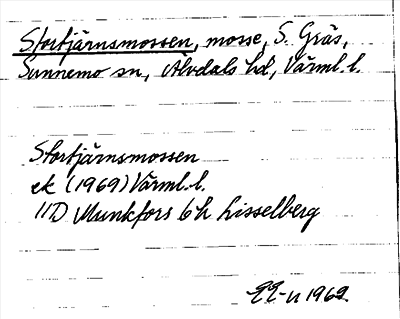 Stortjärnsmossen, mosse, S. Gräs,
Sunnemo sn, Älvdals hd, Värml. l.
Stortjärnsmossen
ek (1969) Värml. l.
11D Munkfors 6h Lisselberg
1969